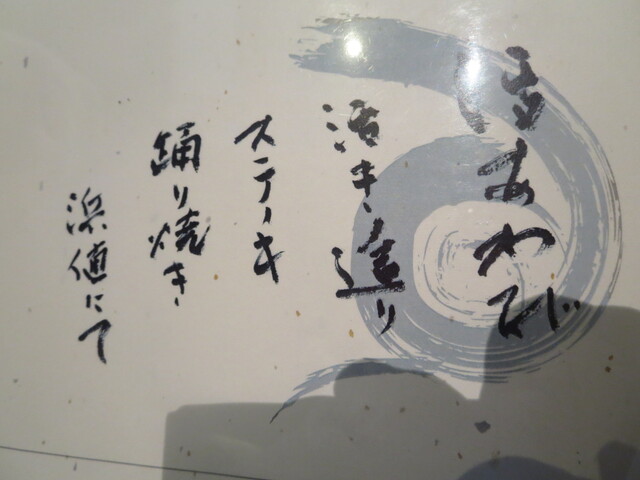 活あわび
活き造り
ステーキ
踊り焼き
浜値にて